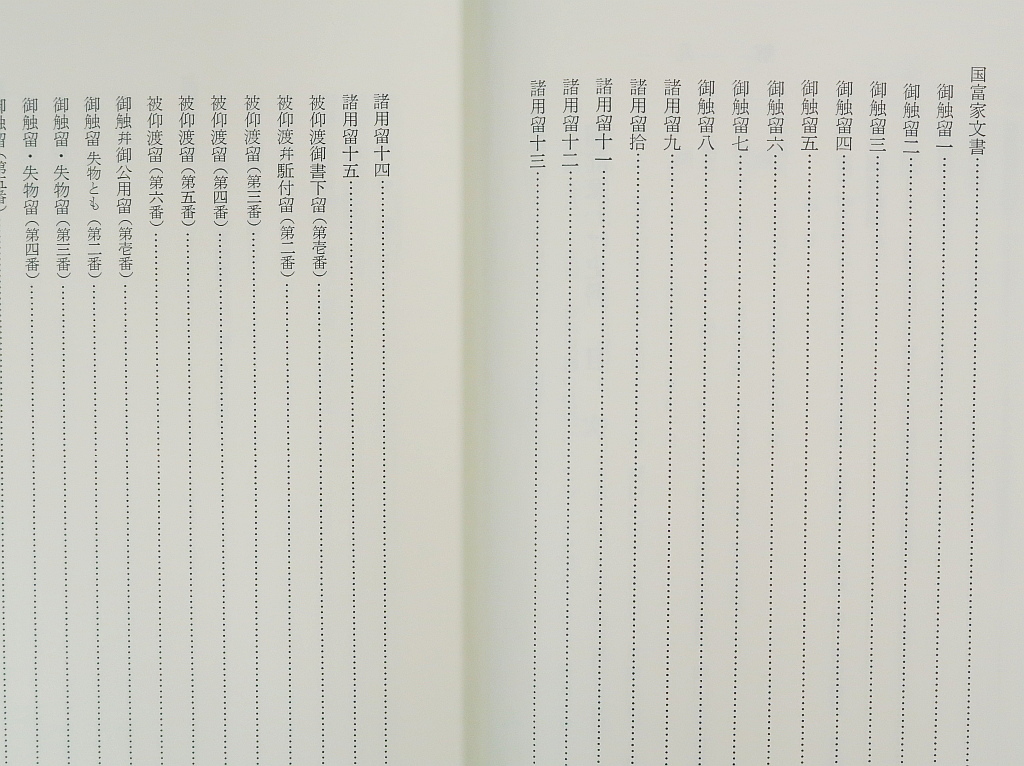 国富家文書
御触留一
御触留二
御触留三
御触留四
御触留五
御触留六
御触留七
御触留八
諸用留九
諸用留拾
諸用留十一
諸用留十二
諸用留十三
諸用留十四
諸用留十五
被仰渡御書下留(第壱番)
被仰渡弁駈付留(第二番)
被仰渡留(第三番)
被仰渡留(第四番)
被仰渡留(第五番)
被仰渡留(第六番)
御触弁御公用留(第壱番)
御触留 失物とも(第二番)
御触留・失物留(第三番)
御触留・失物留(第四番)